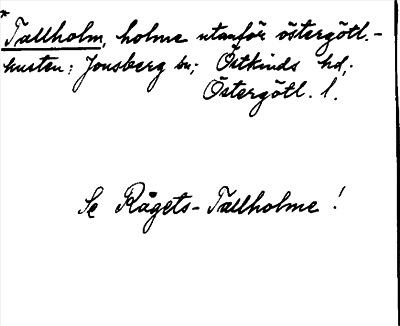 * Tallholm, holme utanför östergötl.-
kusten: Jonsberg sn; Östkinds hd,
Östergötl. l.
Se Rågets-Tallholme!